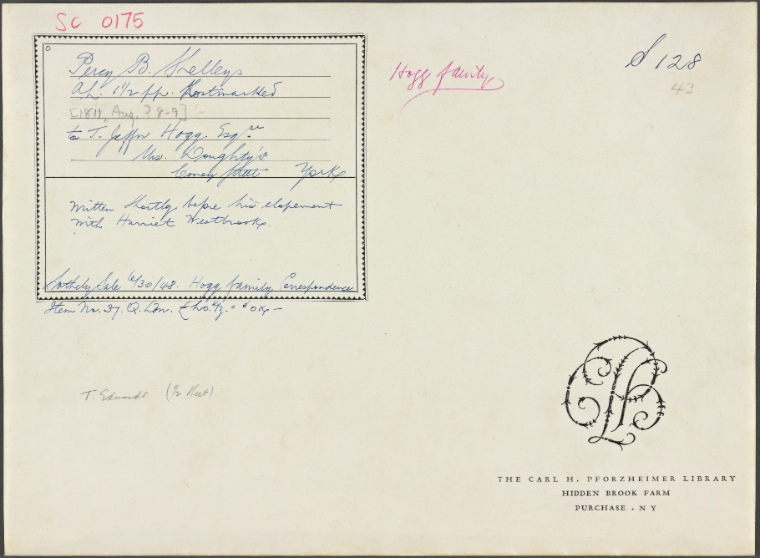 SC 0175
Percy B. Shelley
1 1/2 pp. Postmarked
[1811, Aug. ? 8-9]
to T. Jeffn Hogg. Esqre
Mrs. Doughty's
Coney Street York
Written shortly before his elopement
with Harriet Westbrook.
Sotheby Sale 6/30/48. Hogg family Correspondence
Item No. 37. Q. Don.
Hogg family
S 128
43
T. Edwards
THE CARL H. PFORZHEIMER LIBRARY
HIDDEN BROOK FARM
PURCHASE . N Y